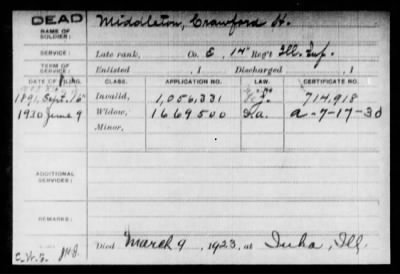 DEAD
NAME OF SOLDIER:
Middleton, Crawford H.
SERVICE:
Late rank, Co. E, 14" Reg't Ill. Inf.
TERM OF SERVICE:
Enlisted , 1 Discharged , 1
DATE OF FILING. CLASS. APPLICATION NO. LAW. CERTIFICATE NO.
1891, Sept. 16 Invalid, 1,056,331 714,918
1930 June 9 Widow, 1669500 Ia. a-7-17-30
Minor,
ADDITIONAL SERVICES:
REMARKS:
Died March 9, 1923, at Iuka, Ill.